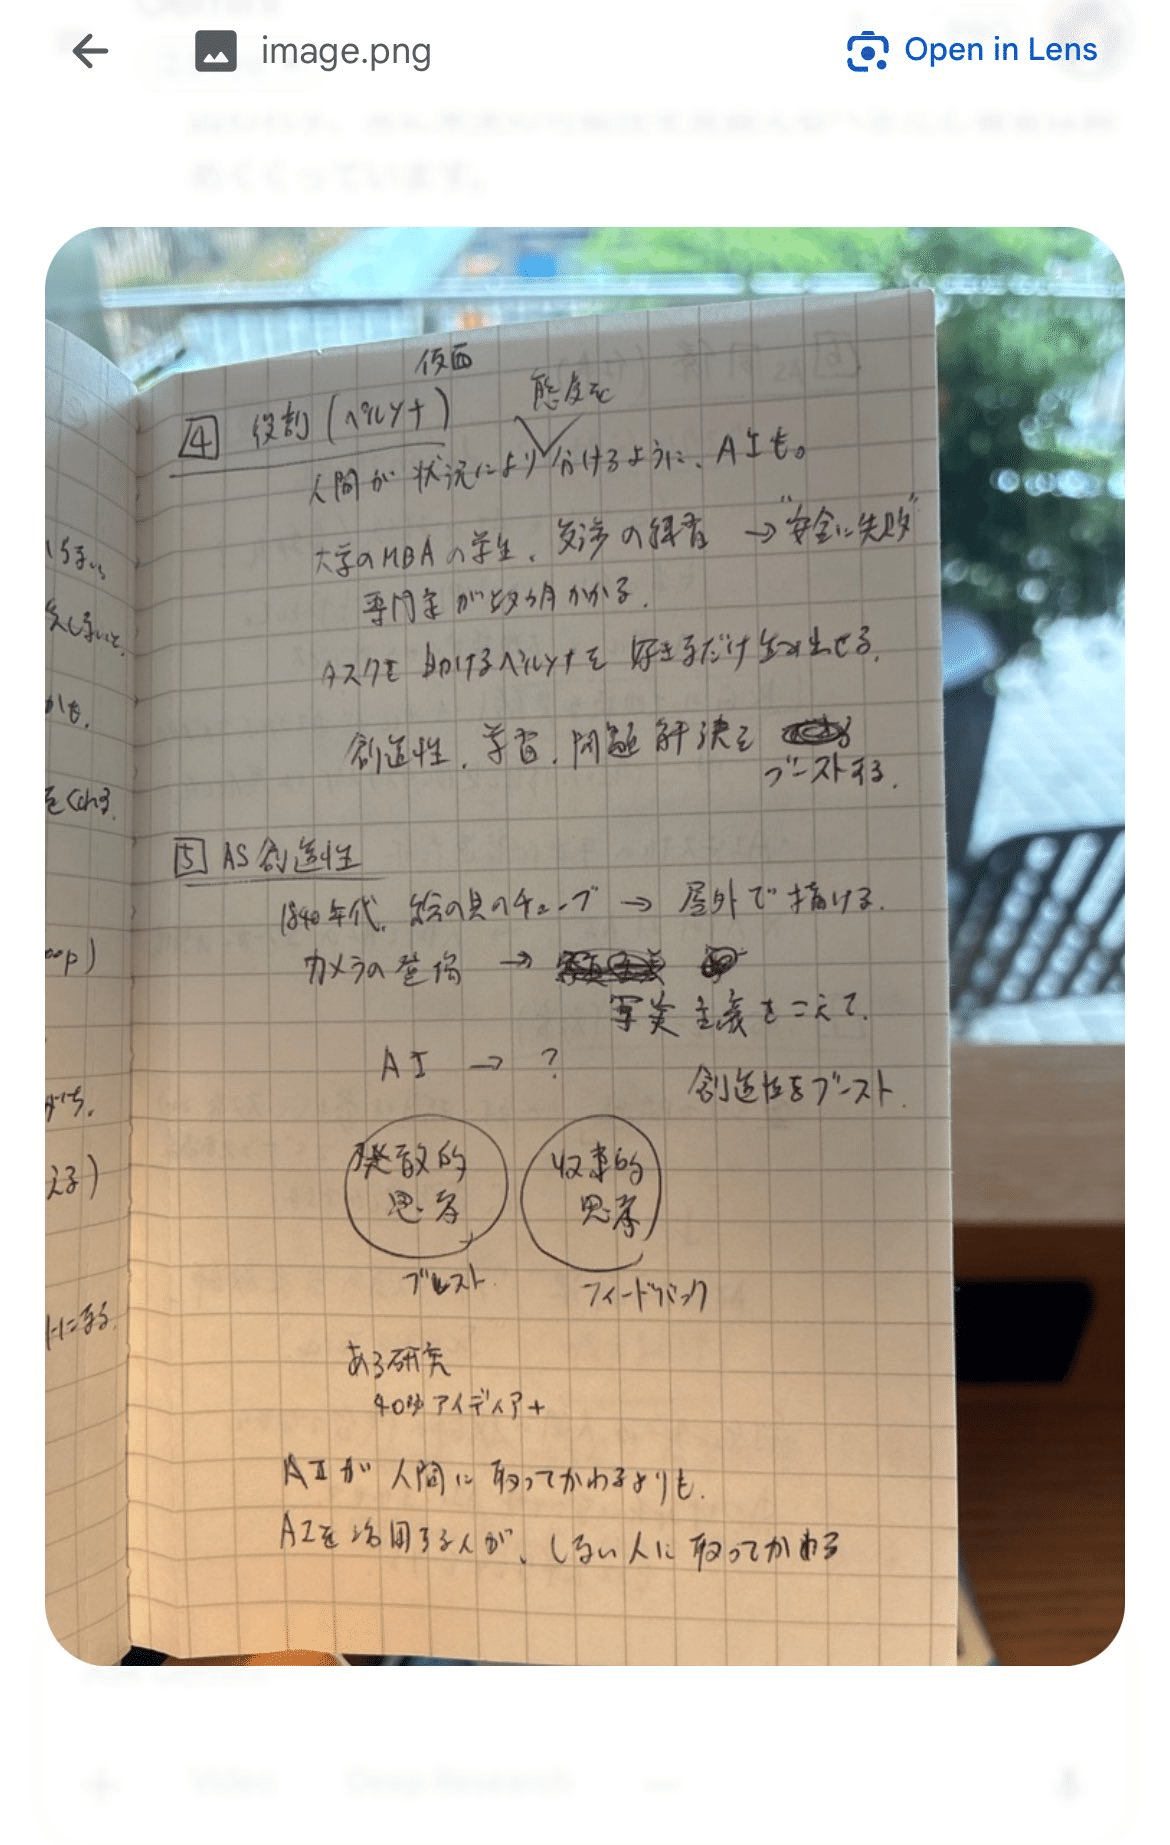 image.png
Open in Lens
めくくっています。
仮面
態度を
4 役割 (ペルソナ)
人間が状況により分けるように、AIも。
大学のMBAの学生、交渉の練習 → "安全に失敗"
専門家が数ヶ月かかる。
タスクを助けるペルソナを好きなだけ生み出せる。
創造性、学習、問題解決を
ブーストする。
5 AS 創造性
1840年代、絵の具のチューブ → 屋外で描ける。
カメラの登場 →
写実主義をこえて、
AI → ?
創造性をブースト。
発散的
思考
収束的
思考
ブレスト
フィードバック
ある研究
40%アイディア+
AIが人間に取ってかわるよりも、
AIを活用する人が、しない人に取ってかわる
をくれる。
oop)
がち。
える)
になる。
Video
Deep Research